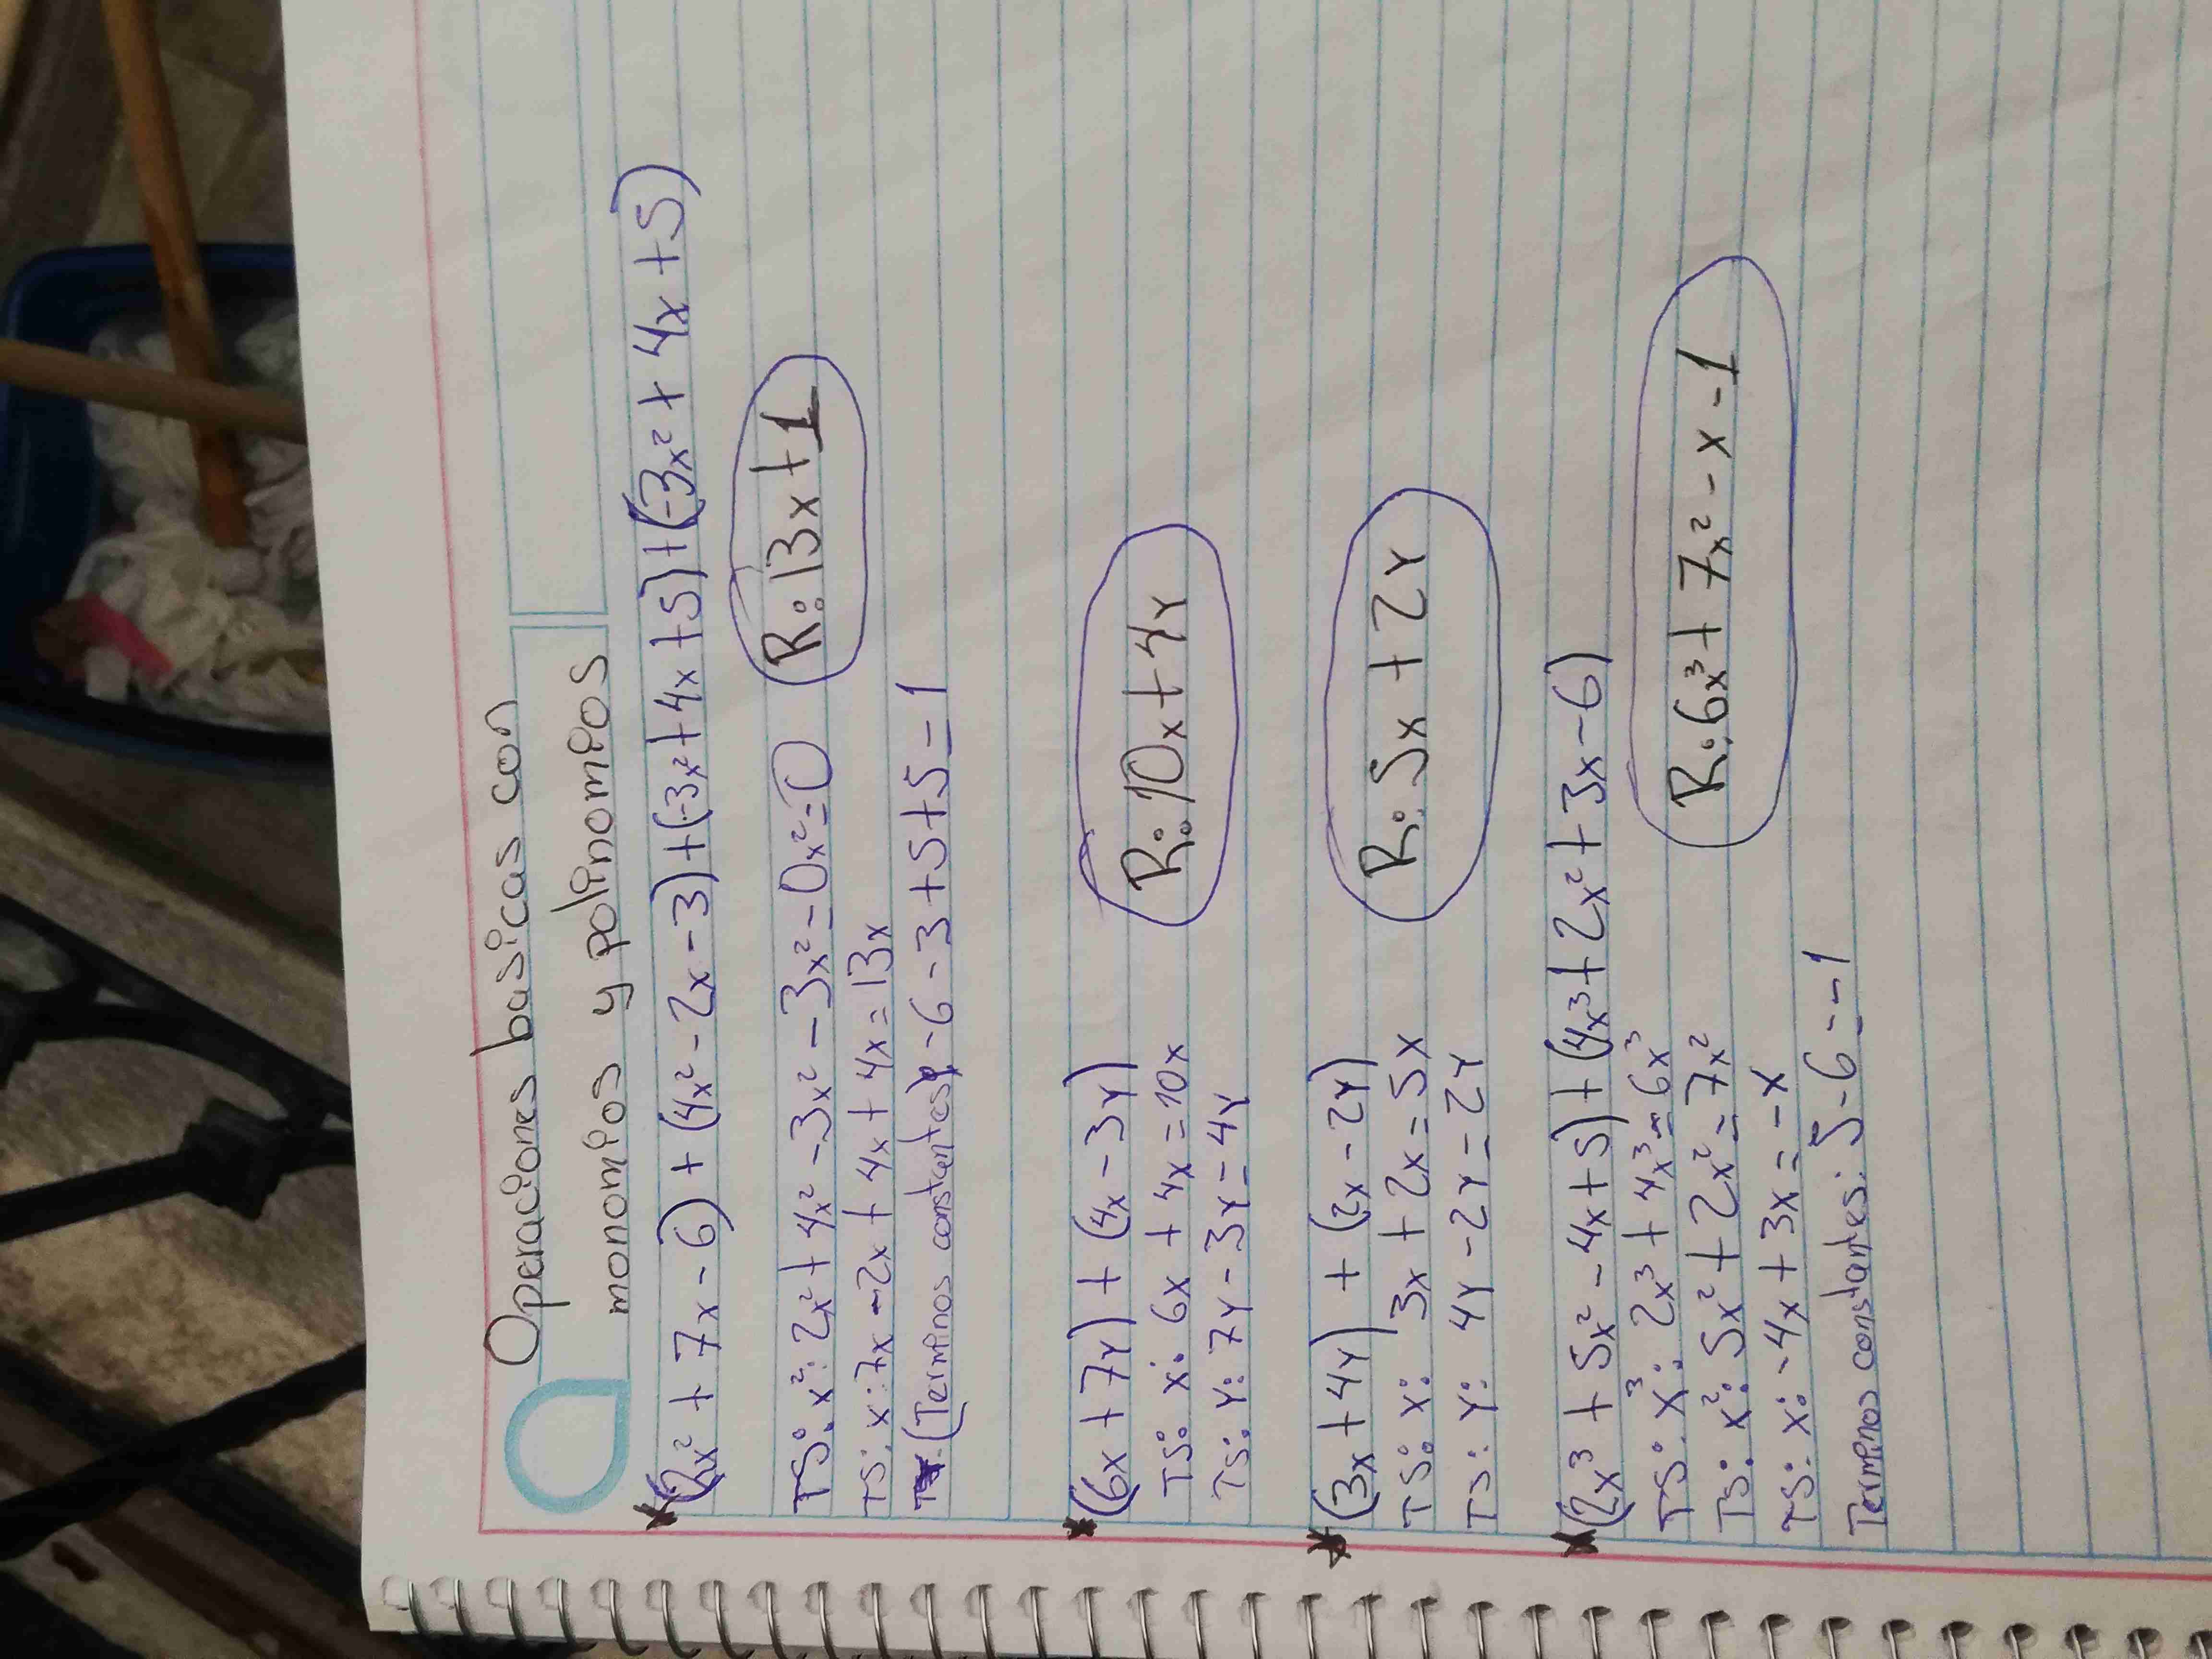 Operaciones basicas con
monomios y polinomios
*(2x² + 7x - 6) + (4x² - 2x - 3) + (-3x² + 4x + 5) + (-3x² + 4x + 5)
TS: x²: 2x² + 4x² - 3x² - 3x² = 0x² = 0
R: 13x + 1
TS: x: 7x - 2x + 4x + 4x = 13x
(Terminos constantes) - 6 - 3 + 5 + 5 = 1
*(6x + 7y) + (4x - 3y)
TS: x: 6x + 4x = 10x
R: 10x + 4y
TS: y: 7y - 3y = 4y
*(3x + 4y) + (2x - 2y)
TS: x: 3x + 2x = 5x
R: 5x + 2y
TS: y: 4y - 2y = 2y
*(2x³ + 5x² - 4x + 5) + (4x³ + 2x² + 3x - 6)
TS: x³: 2x³ + 4x³ = 6x³
TS: x²: 5x² + 2x² = 7x²
R: 6x³ + 7x² - x - 1
TS: x: -4x + 3x = -x
Terminos constantes: 5 - 6 = -1